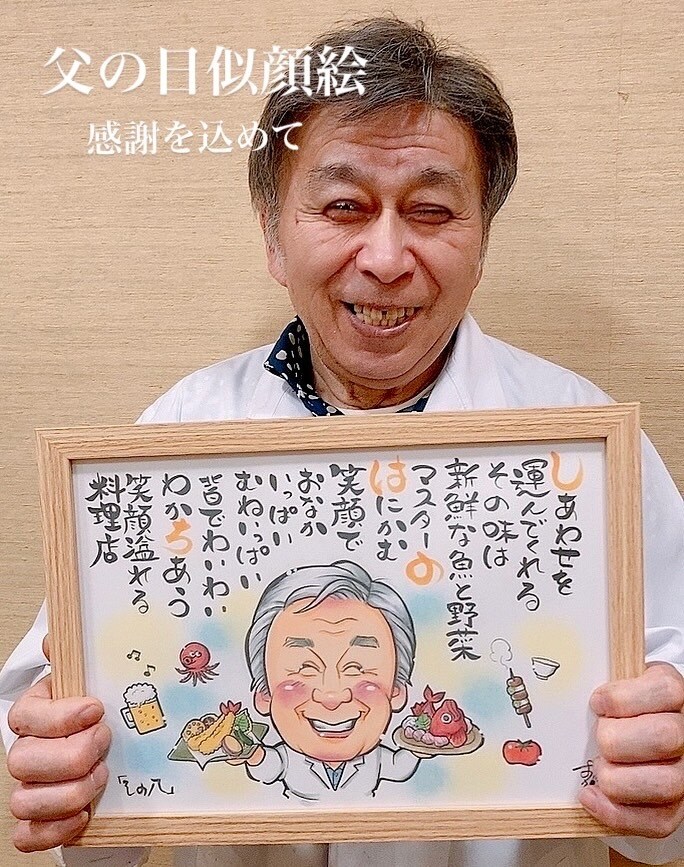 父の日似顔絵
感謝を込めて
しあわせを
運んでくれる
その味は
新鮮な魚と野菜
マスターの
はにかむ
笑顔で
おなか
いっぱい
むねいっぱい
皆でわいわい
わかちあう
笑顔溢れる
料理店